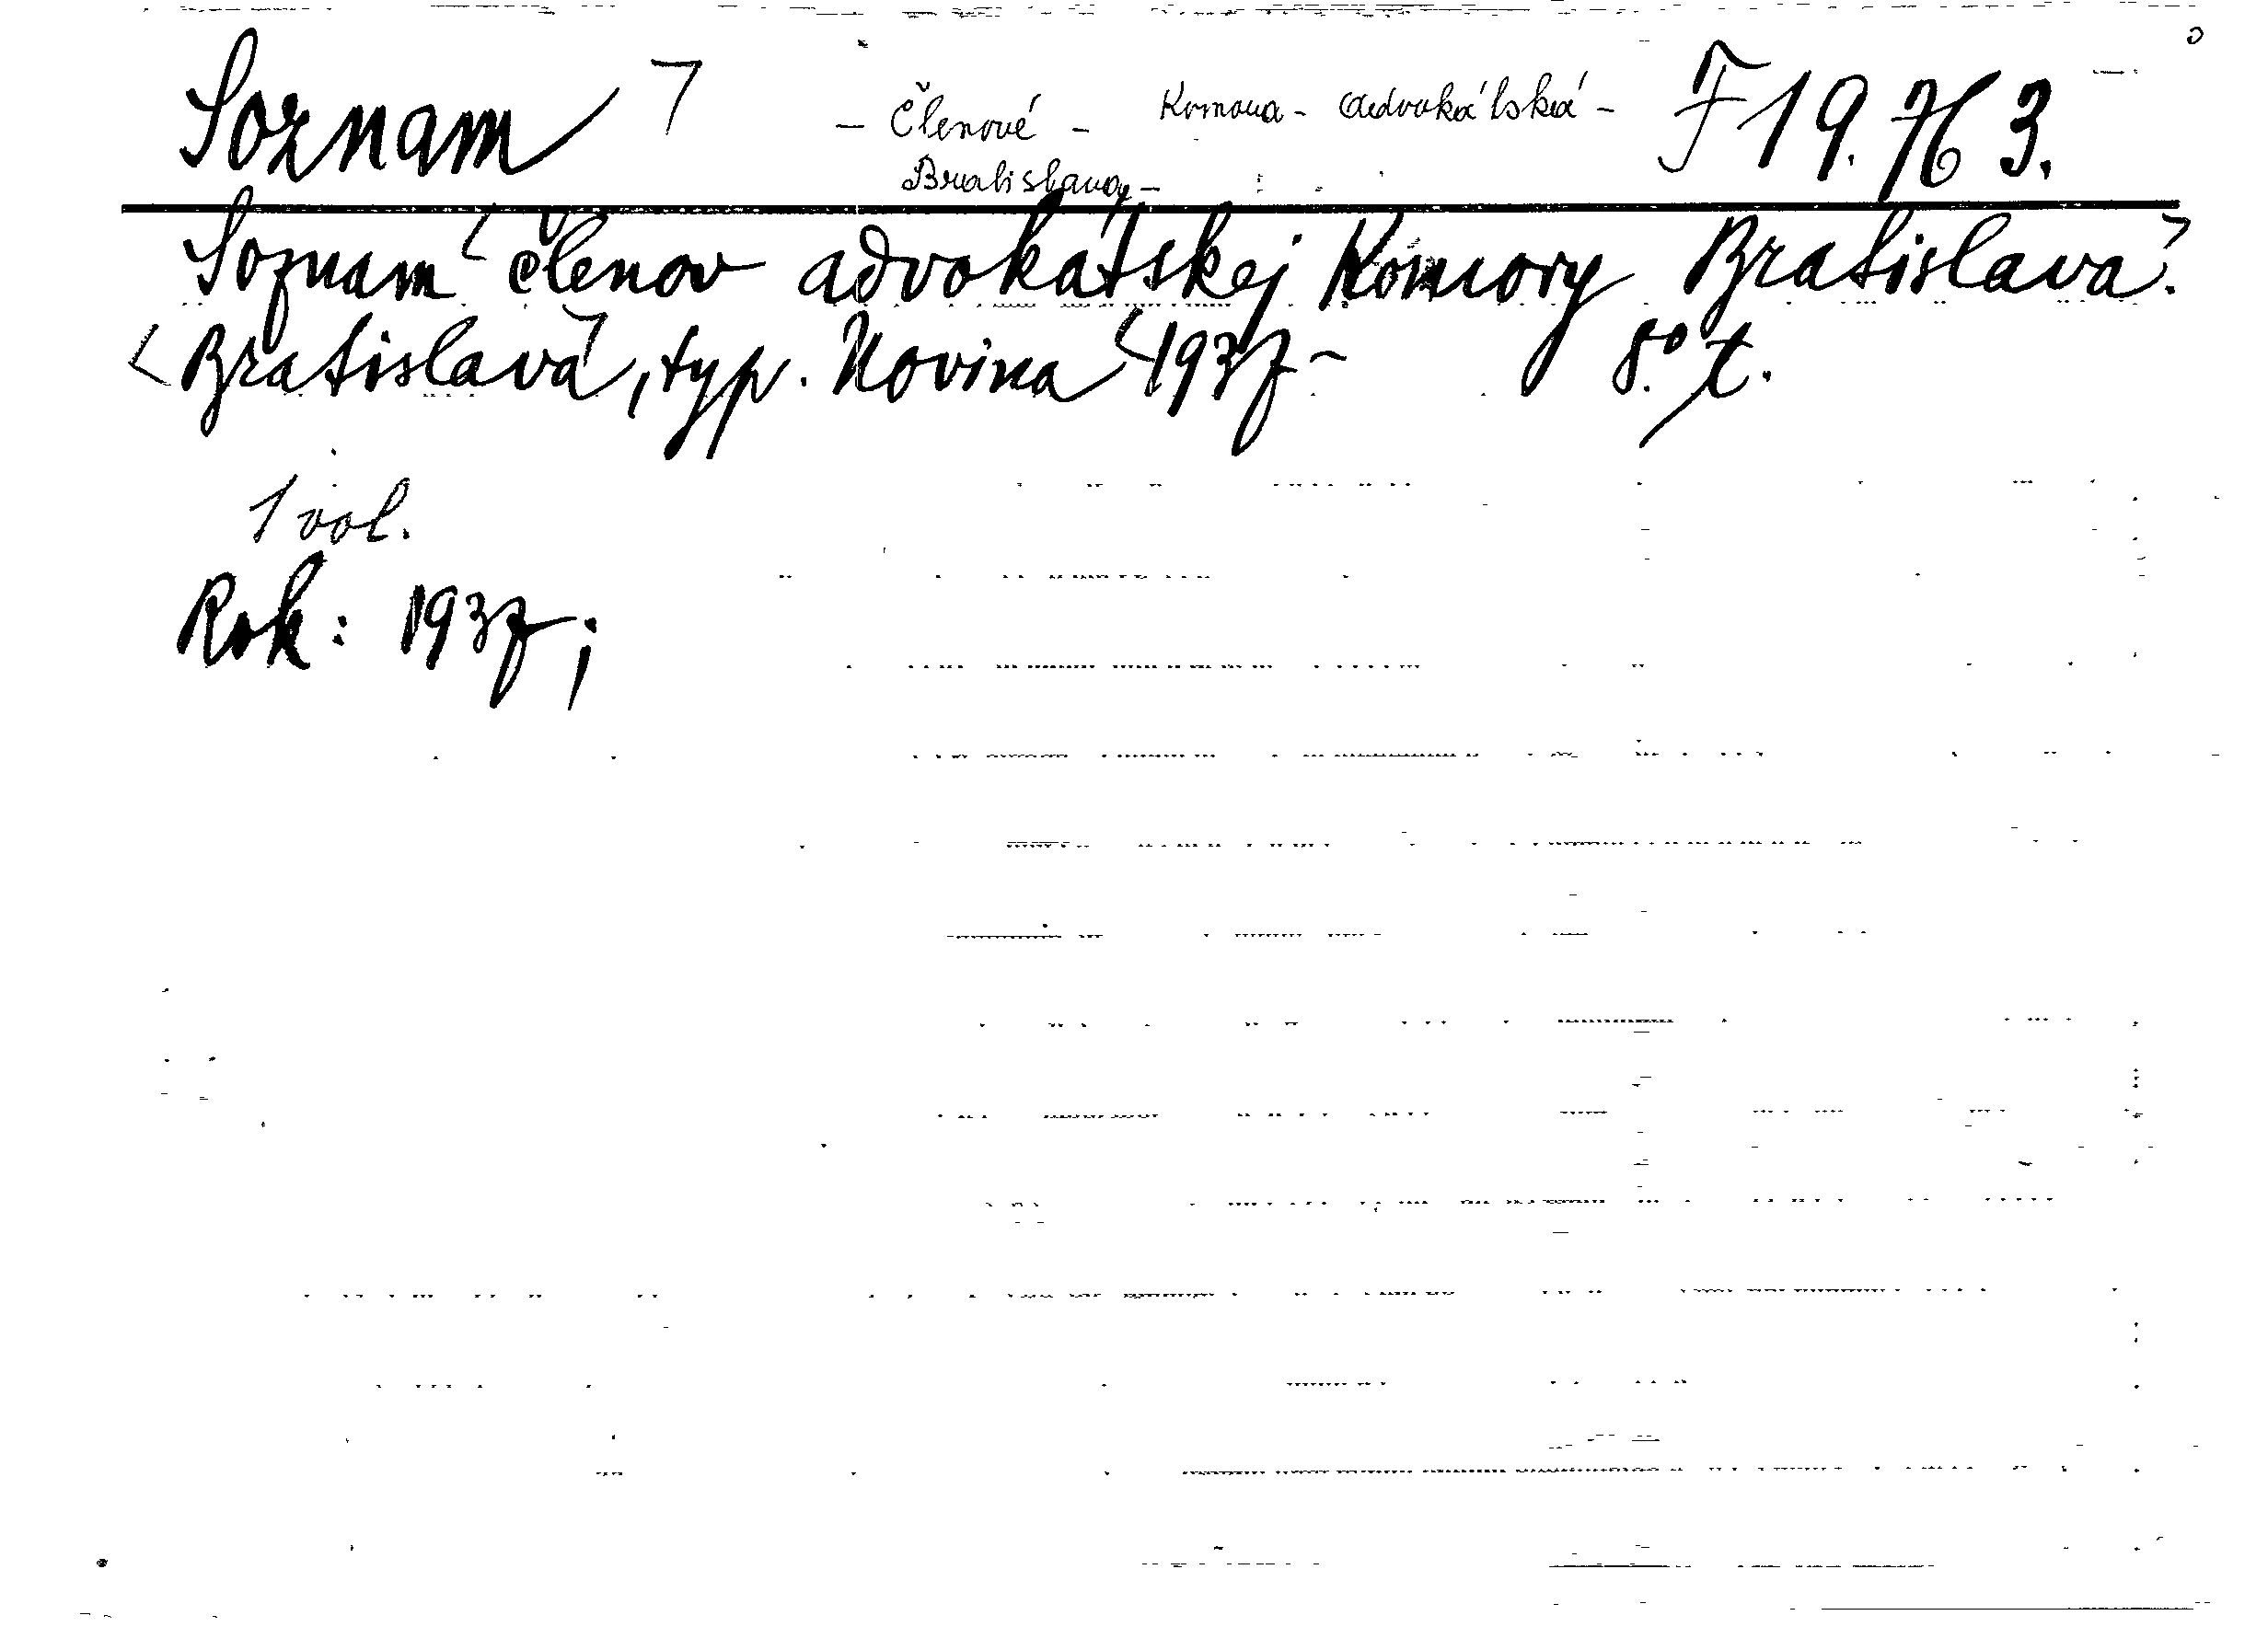 Soznam – Členové – Komora – advokátská – F 19. H 3.
Bratislava –
Soznam členov advokátskej Komory Bratislava.
Bratislava, typ. Novina 1937 – 8.° t.
1 vol.
Rok: 1937;